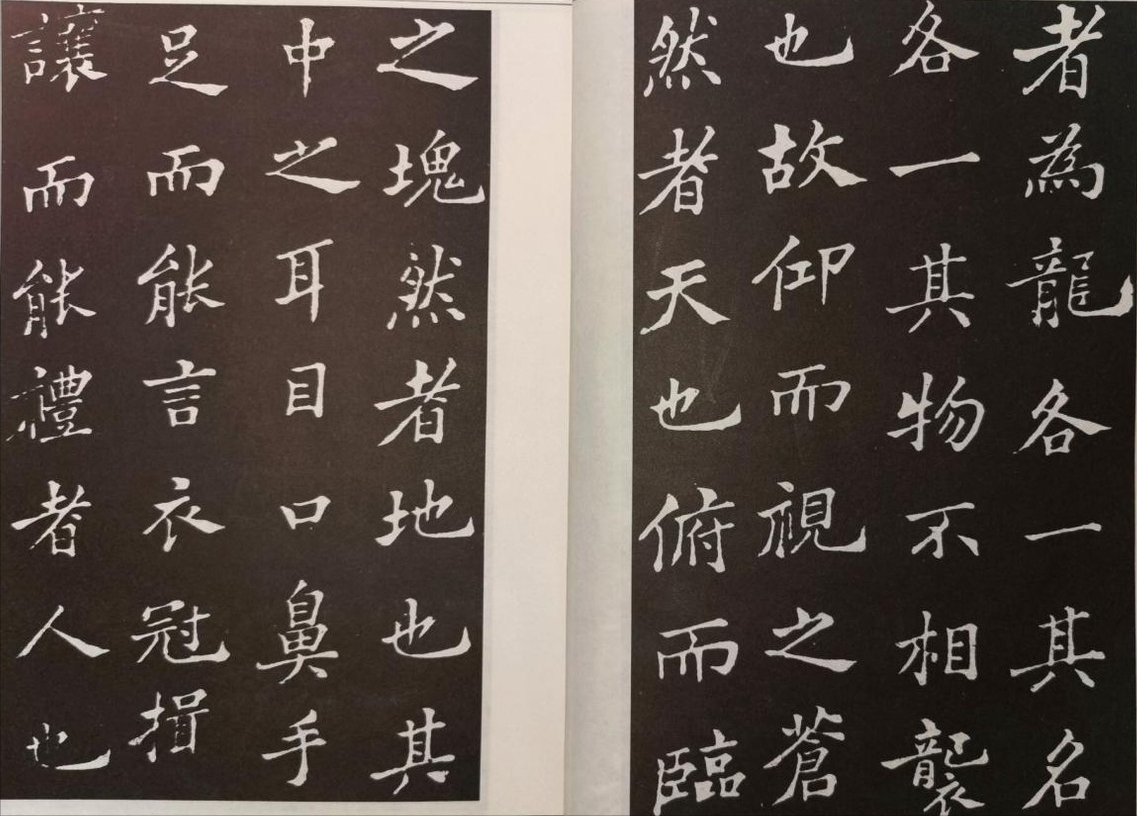 者為龍各一其名
各一其物不相襲
也故仰而視之蒼
然者天也俯而臨
之塊然者地也其
中之耳目口鼻手
足而能言衣冠揖
讓而能禮者人也